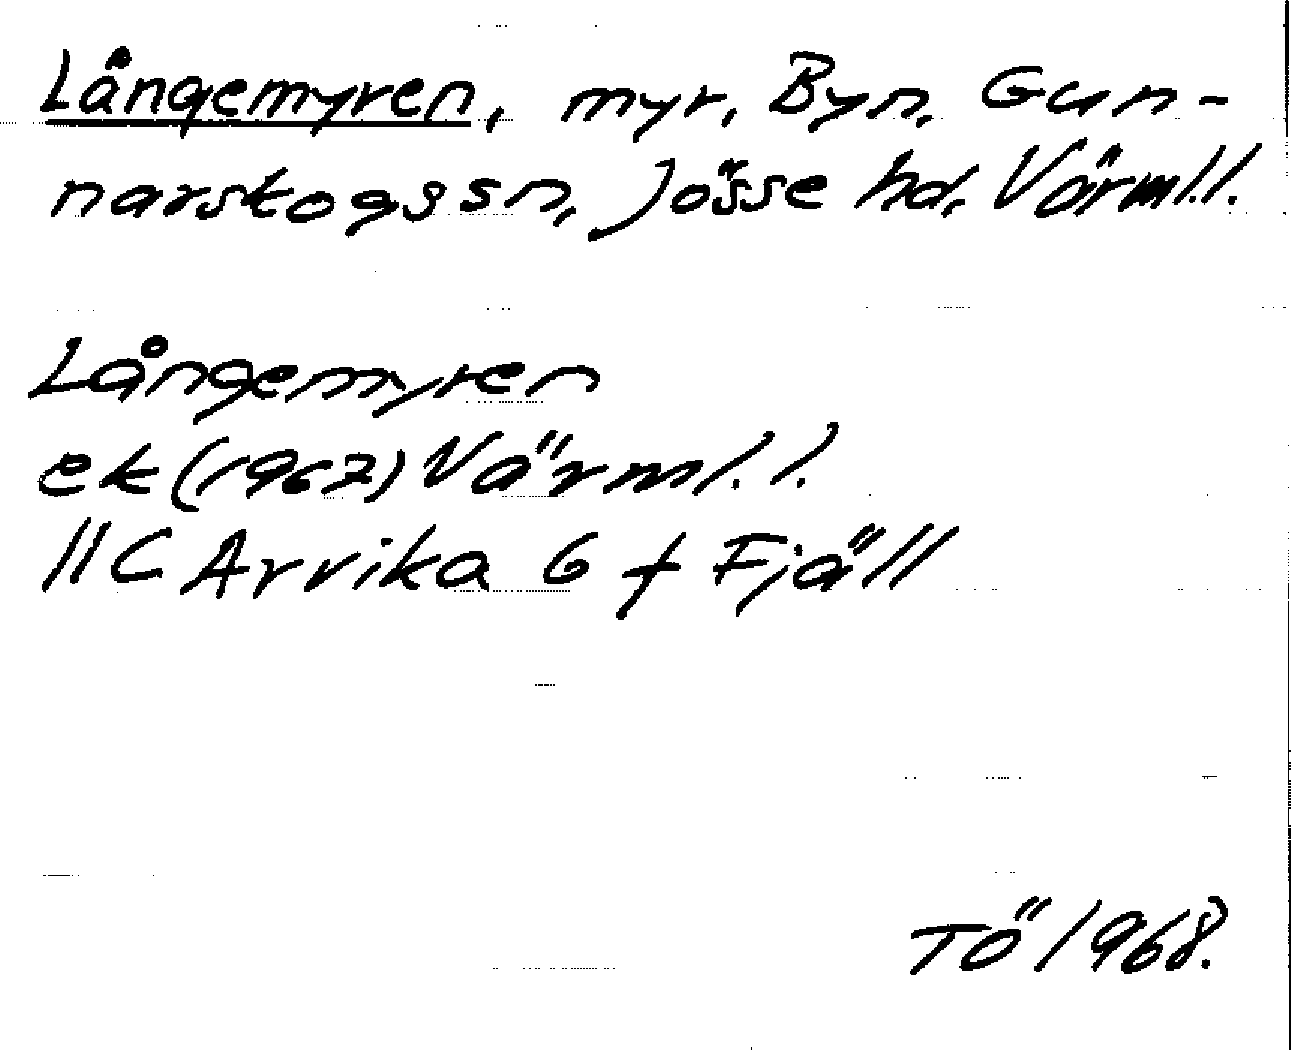 Långemyren, myr, Byn, Gun-
narskogs sn, Jösse hd, Värml.l.
Långemyren
ek (1967) Värml. l.
11C Arvika 6 f Fjäll
TÖ 1968.